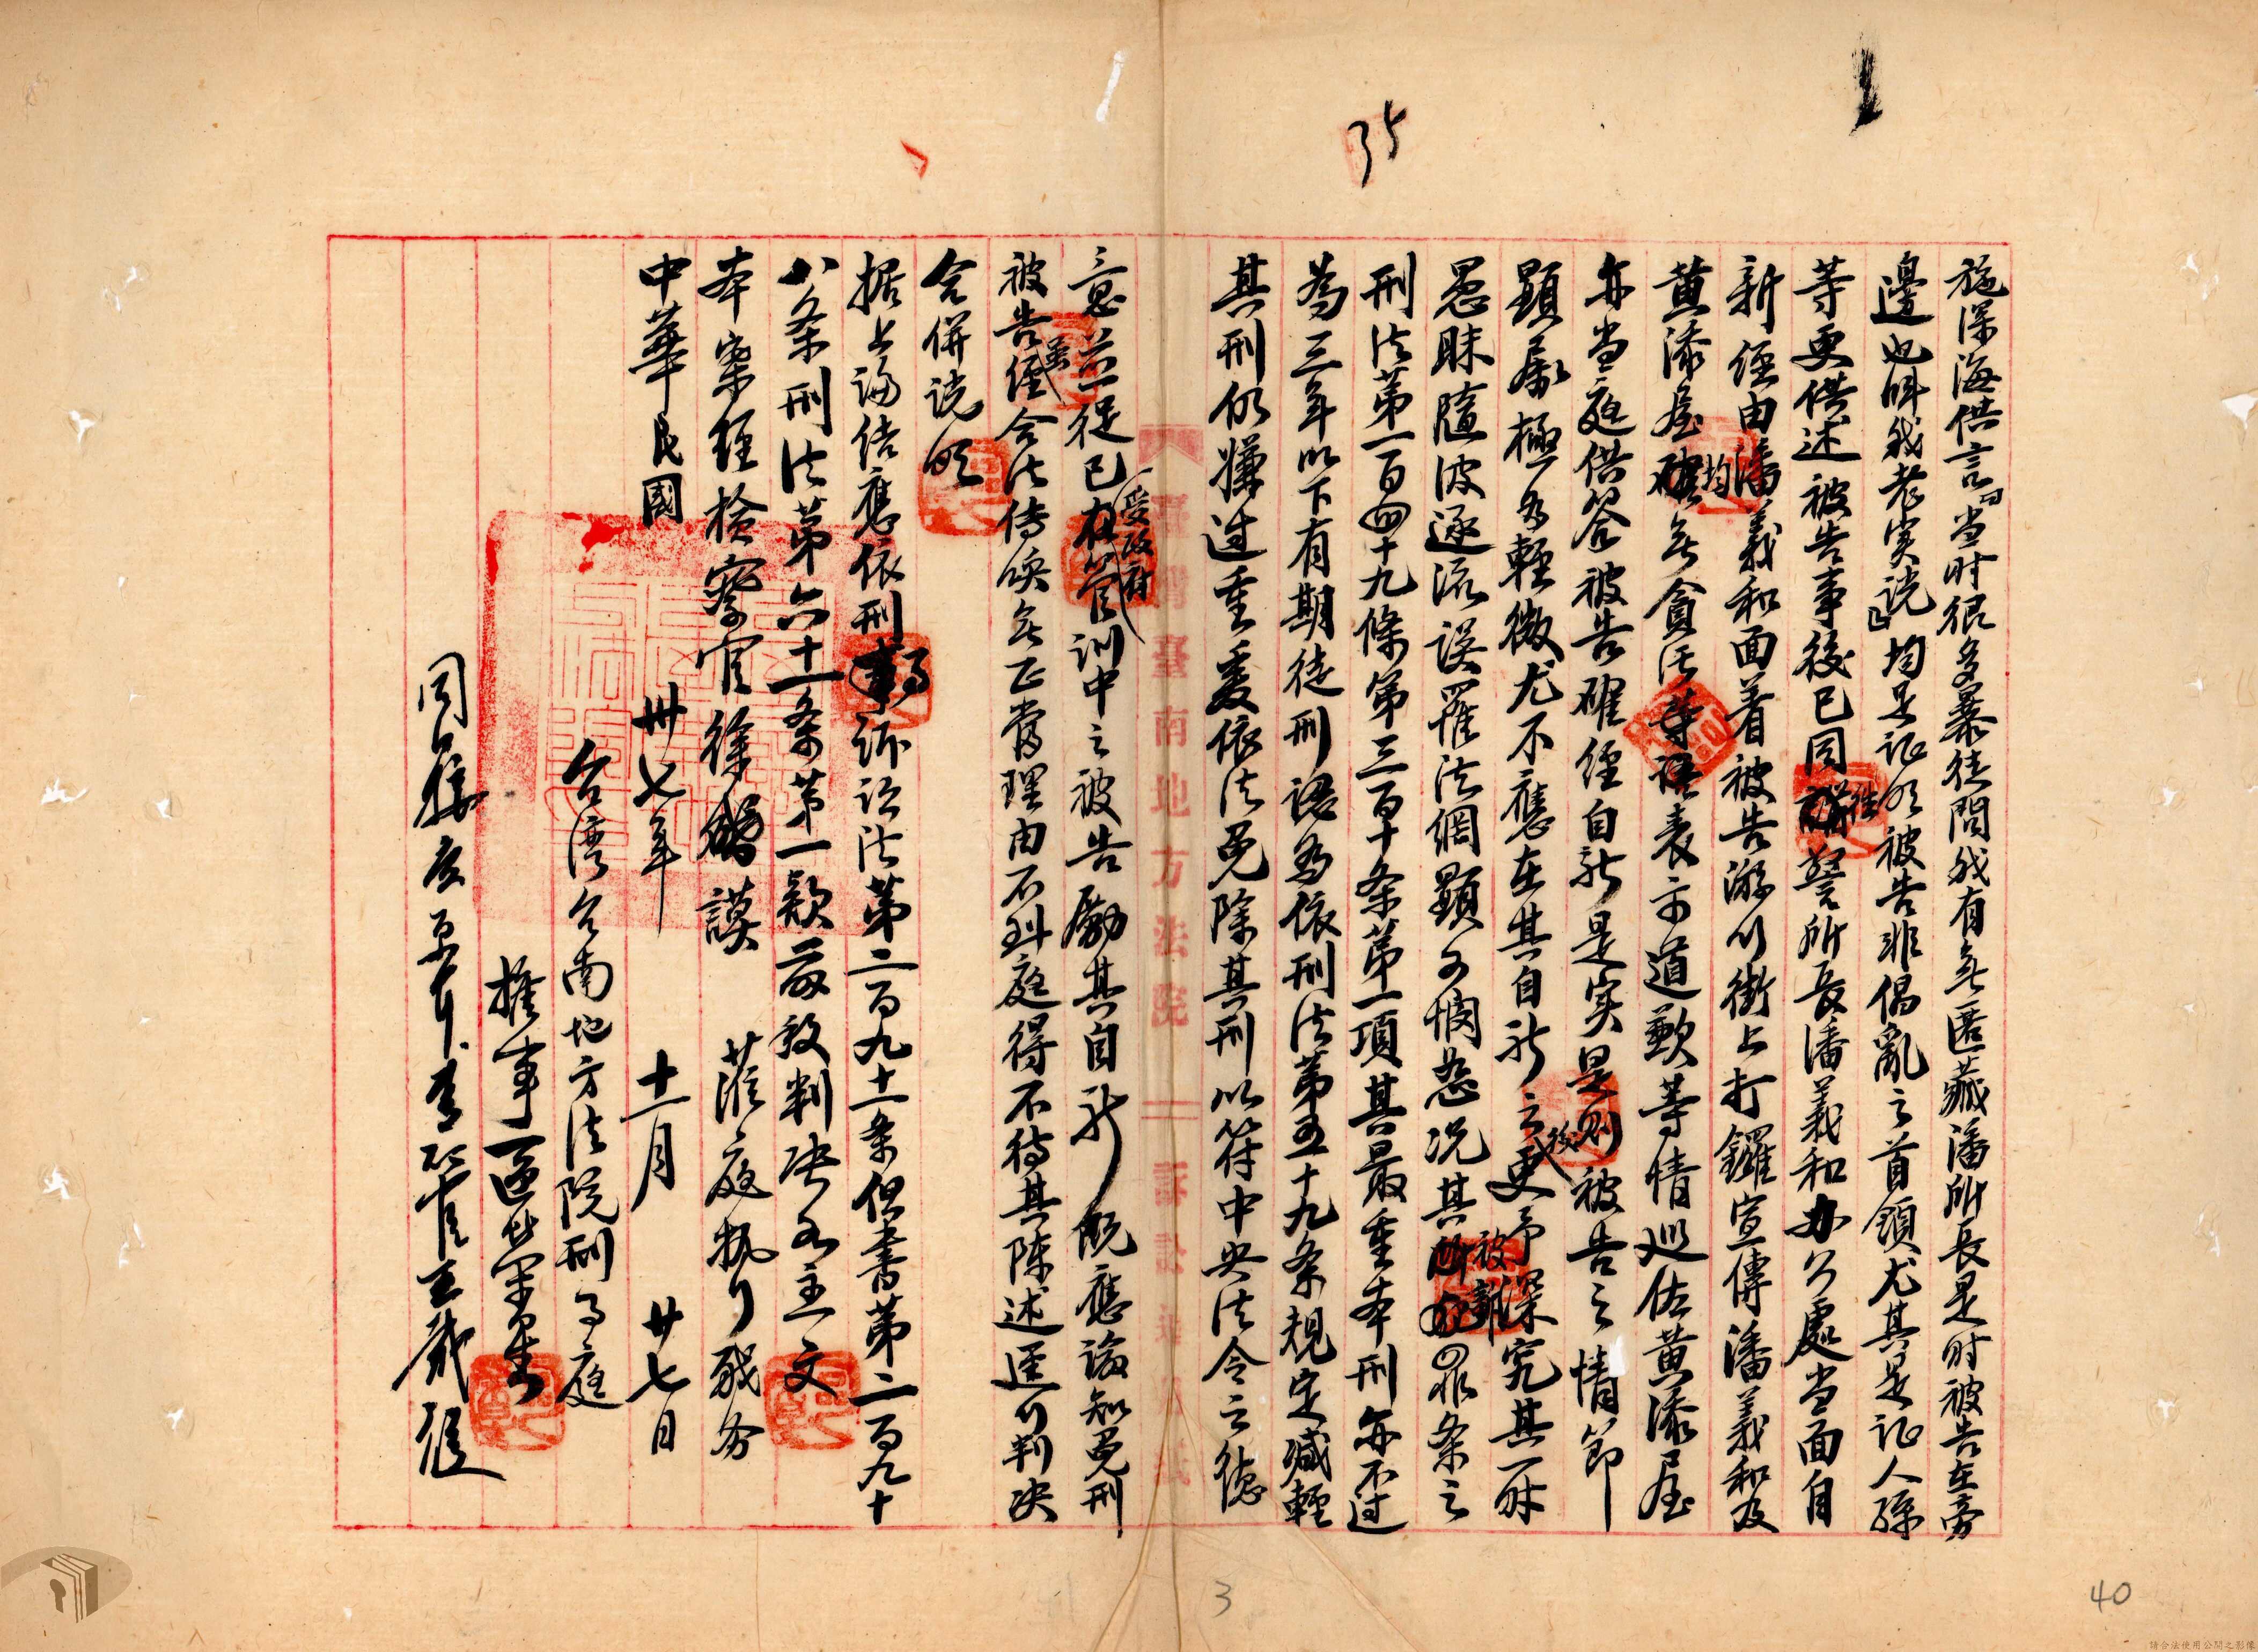 35
施深海供言曰当时很多暴徒問我有無匿藏潘所長是时被告在旁
邊也叫我老実説」均足证明被告非倡亂之首領尤其是证人孫
等更供述被告事後已同往警所長潘義和办公處当面自
新經由潘義和面着被告游行街上打鑼宣傳潘義和及
黄漆屋均無貪污等語表示道歉等情巡佐黄漆屋
亦当庭供答被告確經自新是实是则被告之情節
顕屬極為輕微尤不應在其自新之後更予深究其一時
愚昧隨波逐流误罹法網顕可憫恕况其被訴の罪条之
刑法第一百四十九條第三百十条第一項其最重本刑亦不过
為三年以下有期徒刑諸為依刑法第五十九条規定减輕
其刑仍嫌过重爰依法免除其刑以符中央法令之德
意並促已受政府訓中之被告勵其自新既應諭知免刑
被告經合法传唤無正當理由不到庭得不待其陳述逕行判决
合併説明
据上論结應依刑事诉訟法第二百九十一条但書第二百九十
八条刑法第六十一条第一款前段判决如主文
本案經檢察官徐 謨蒞庭执行職务
中華民國卅七年十一月廿七日
台湾台南地方法院刑事庭
推事
臺南地方法院
3
40
請合法使用公開之影像